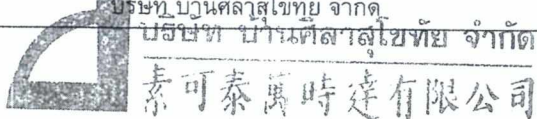 บริษัท บ้านศิลาสุโขทัย จำกัด
บริษัท บ้านศิลาสุโขทัย จำกัด
素可泰萬時達有限公司